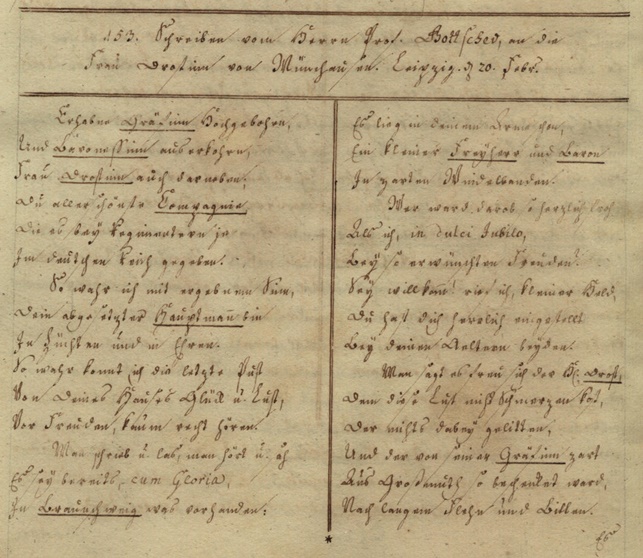 153. Schreiben vom Herrn Prof. Gottsched, an die
Frau Drostinn von Münchausen. Leipzig. d 20. Febr.
Erhabne Gräfinn Hochgebohrn,
Und Baronessinn auserkohrn,
Frau Drostinn auch darneben,
Du allerschönste Compagnie,
Die es bey Regimentern je
Im deutschen Reich gegeben.
So wahr ich mit ergebnem Sinn,
Dein abgesetzter Hauptmann bin
In Züchten und in Ehren.
So wahr konnt ich die letzte Post
Von Deines Hauses Glück u. Lust,
Vor Freuden, kaum recht hören.
Man schrieb u. las, man hört u. sah
Es sey bereits, cum Gloria,
In Braunschweig was vorhanden:
Es lieg in deinem Arme schon,
Ein kleiner Freyherr und Baron
In zarten Windelbanden.
Wer ward darob so herzlich froh
Als ich, in dulci Jubilo,
Bey so erwünschten Freuden!
Sey willkomm! rief ich, kleiner Held,
Du hast dich herrlich eingestellt
Bey deinen Aeltern beyden.
Man sagt es freu sich der H. Drost,
Dem diese Lust nicht Schmerzen kost,
Der nichts dabey gelitten,
Und der von seiner Gräfinn zart
Aus Großmuth so beschenket ward,
Nach langem Flehn und Bitten.